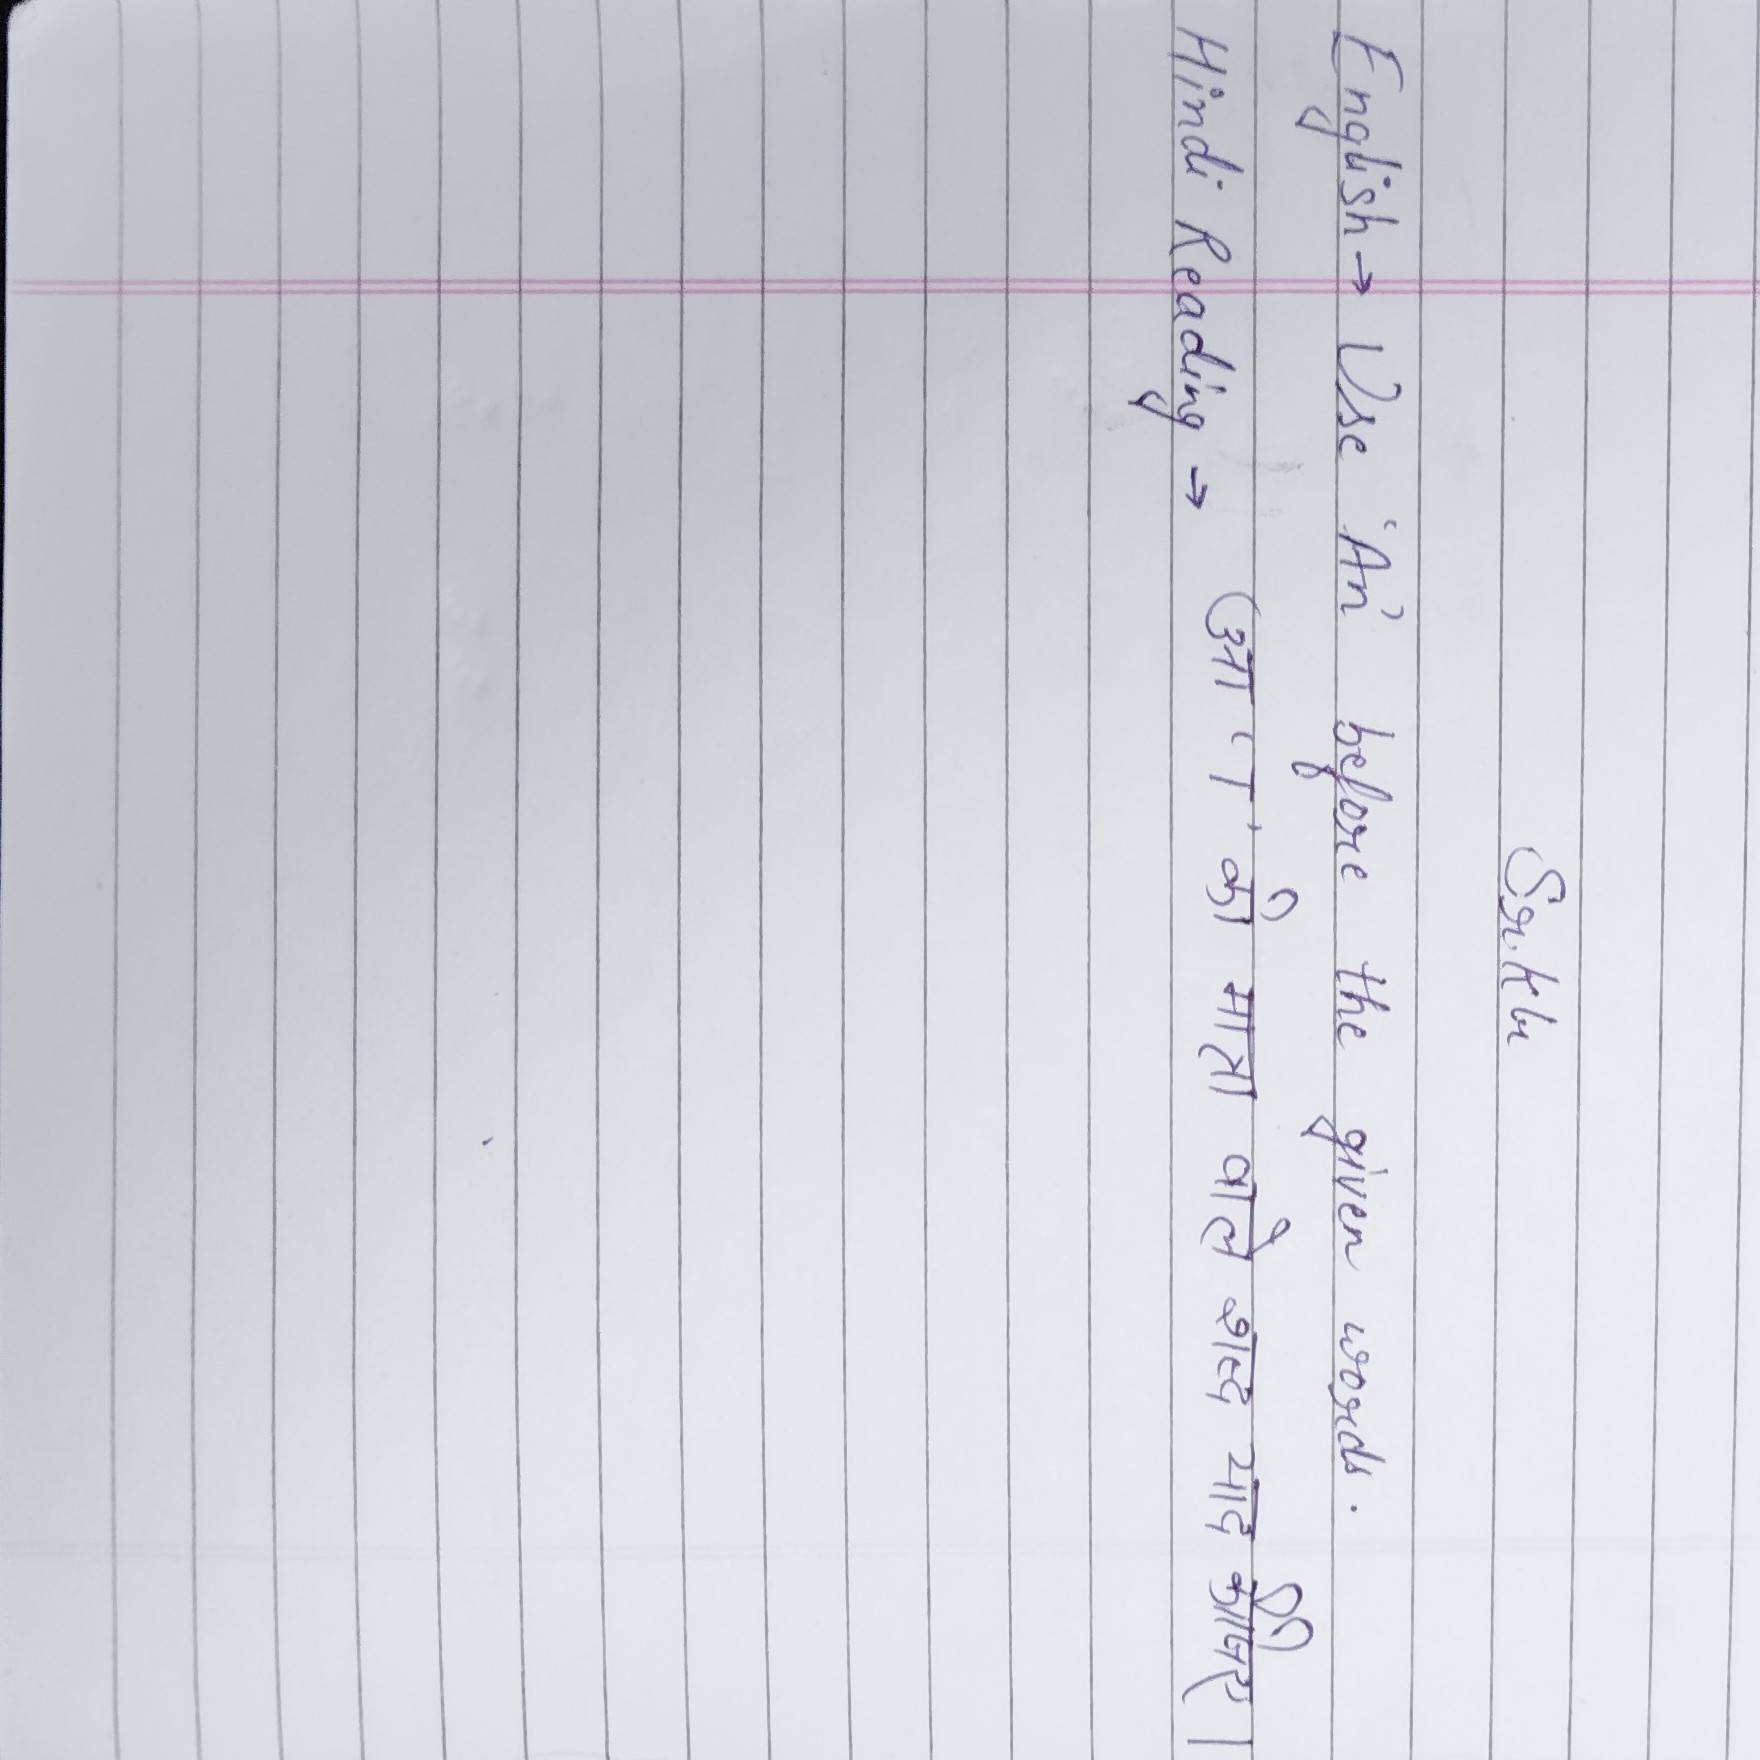 Sr.kG
English → Use 'An' before the given words.
Hindi Reading → (आ 'ा' की मात्रा वाले शब्द याद कीजिए।